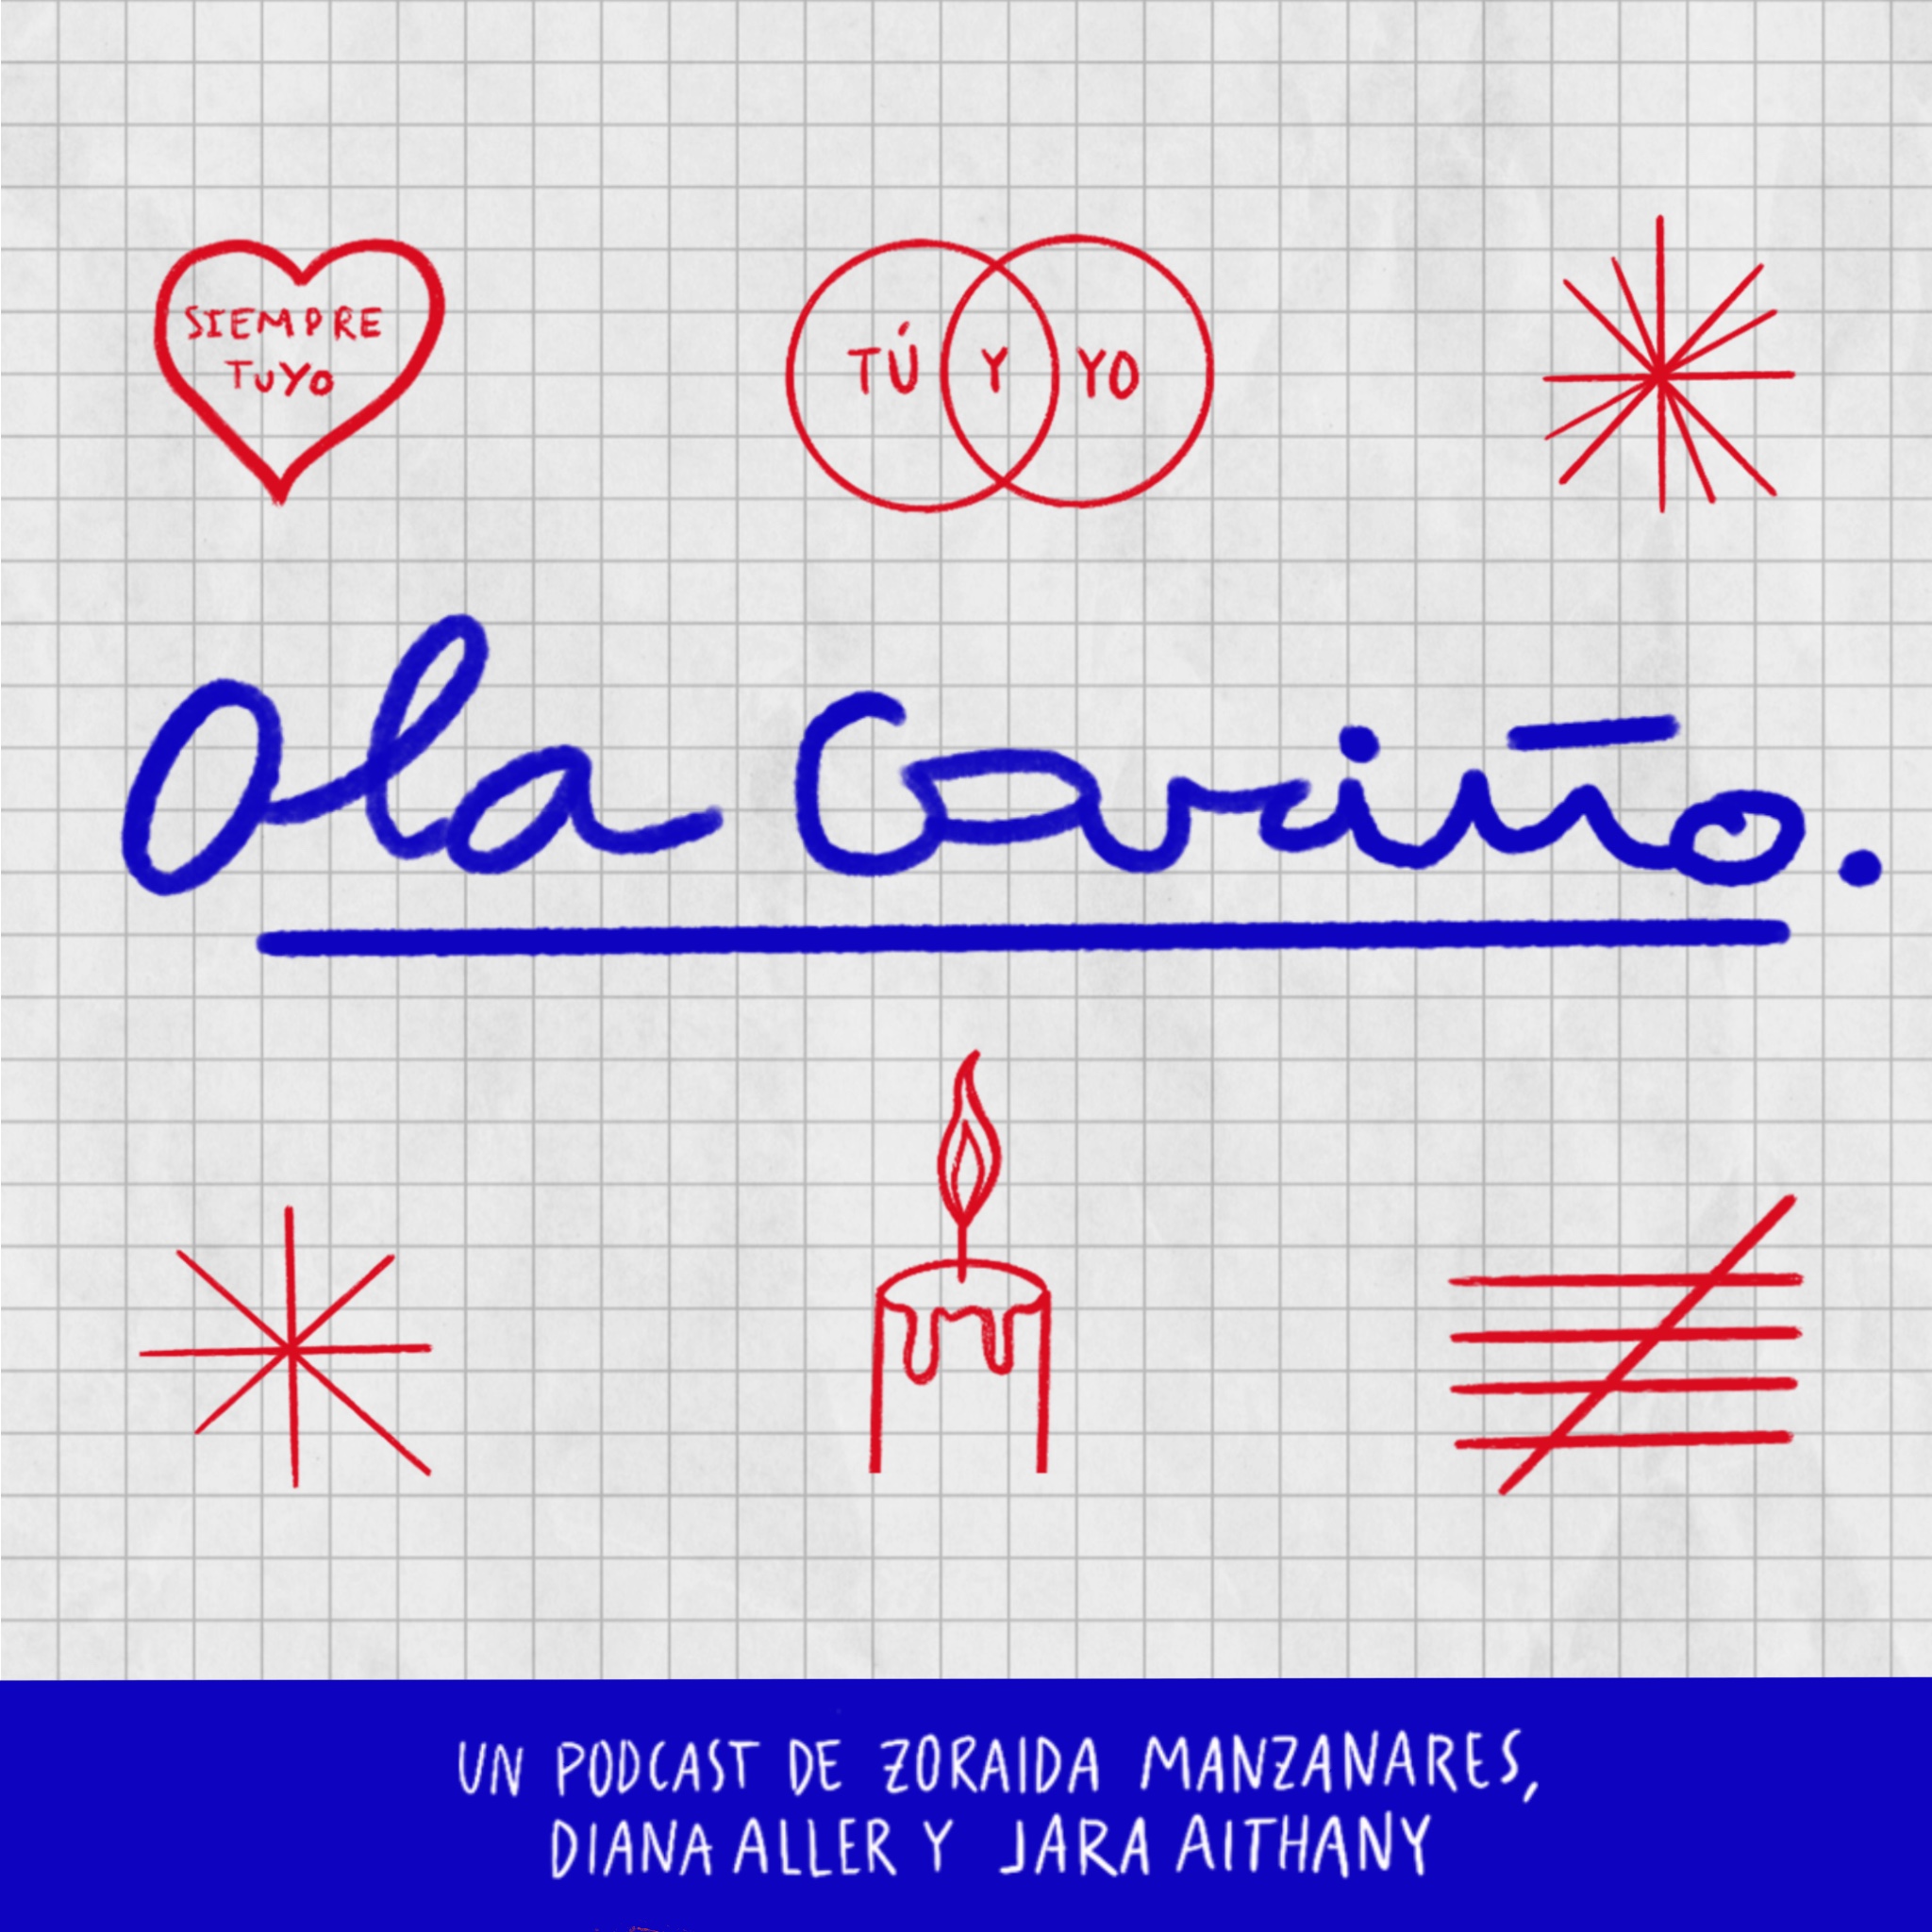 SIEMPRE
TUYO
TÚ Y YO
Ola Cariño.
UN PODCAST DE ZORAIDA MANZANARES,
DIANA ALLER Y JARA AITHANY